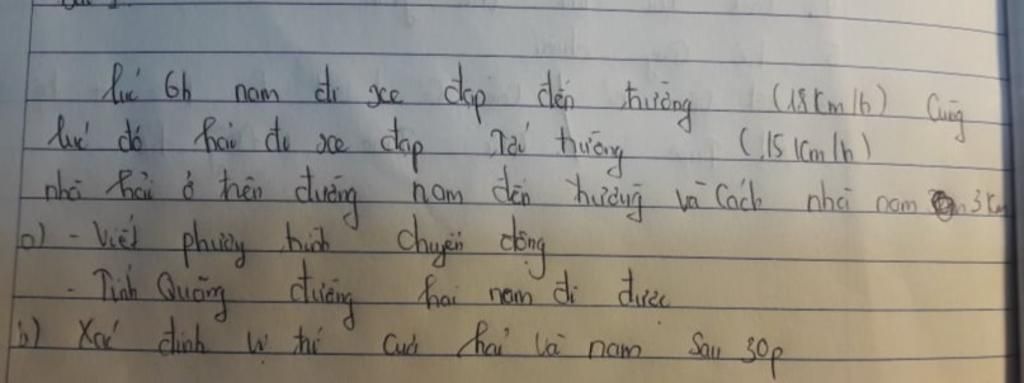 lúc 6h nam đi xe đạp đến trường (18km/h) Cùng
lúc đó hải đi xe đạp Tới trường (15km/h)
nhà hải ở trên đường nam đến trường và Cách nhà nam 3km
a) - Viết phương trình chuyển động
- Tính Quãng đường hai nam đi được
b) Xác định vị trí của hải và nam sau 30p